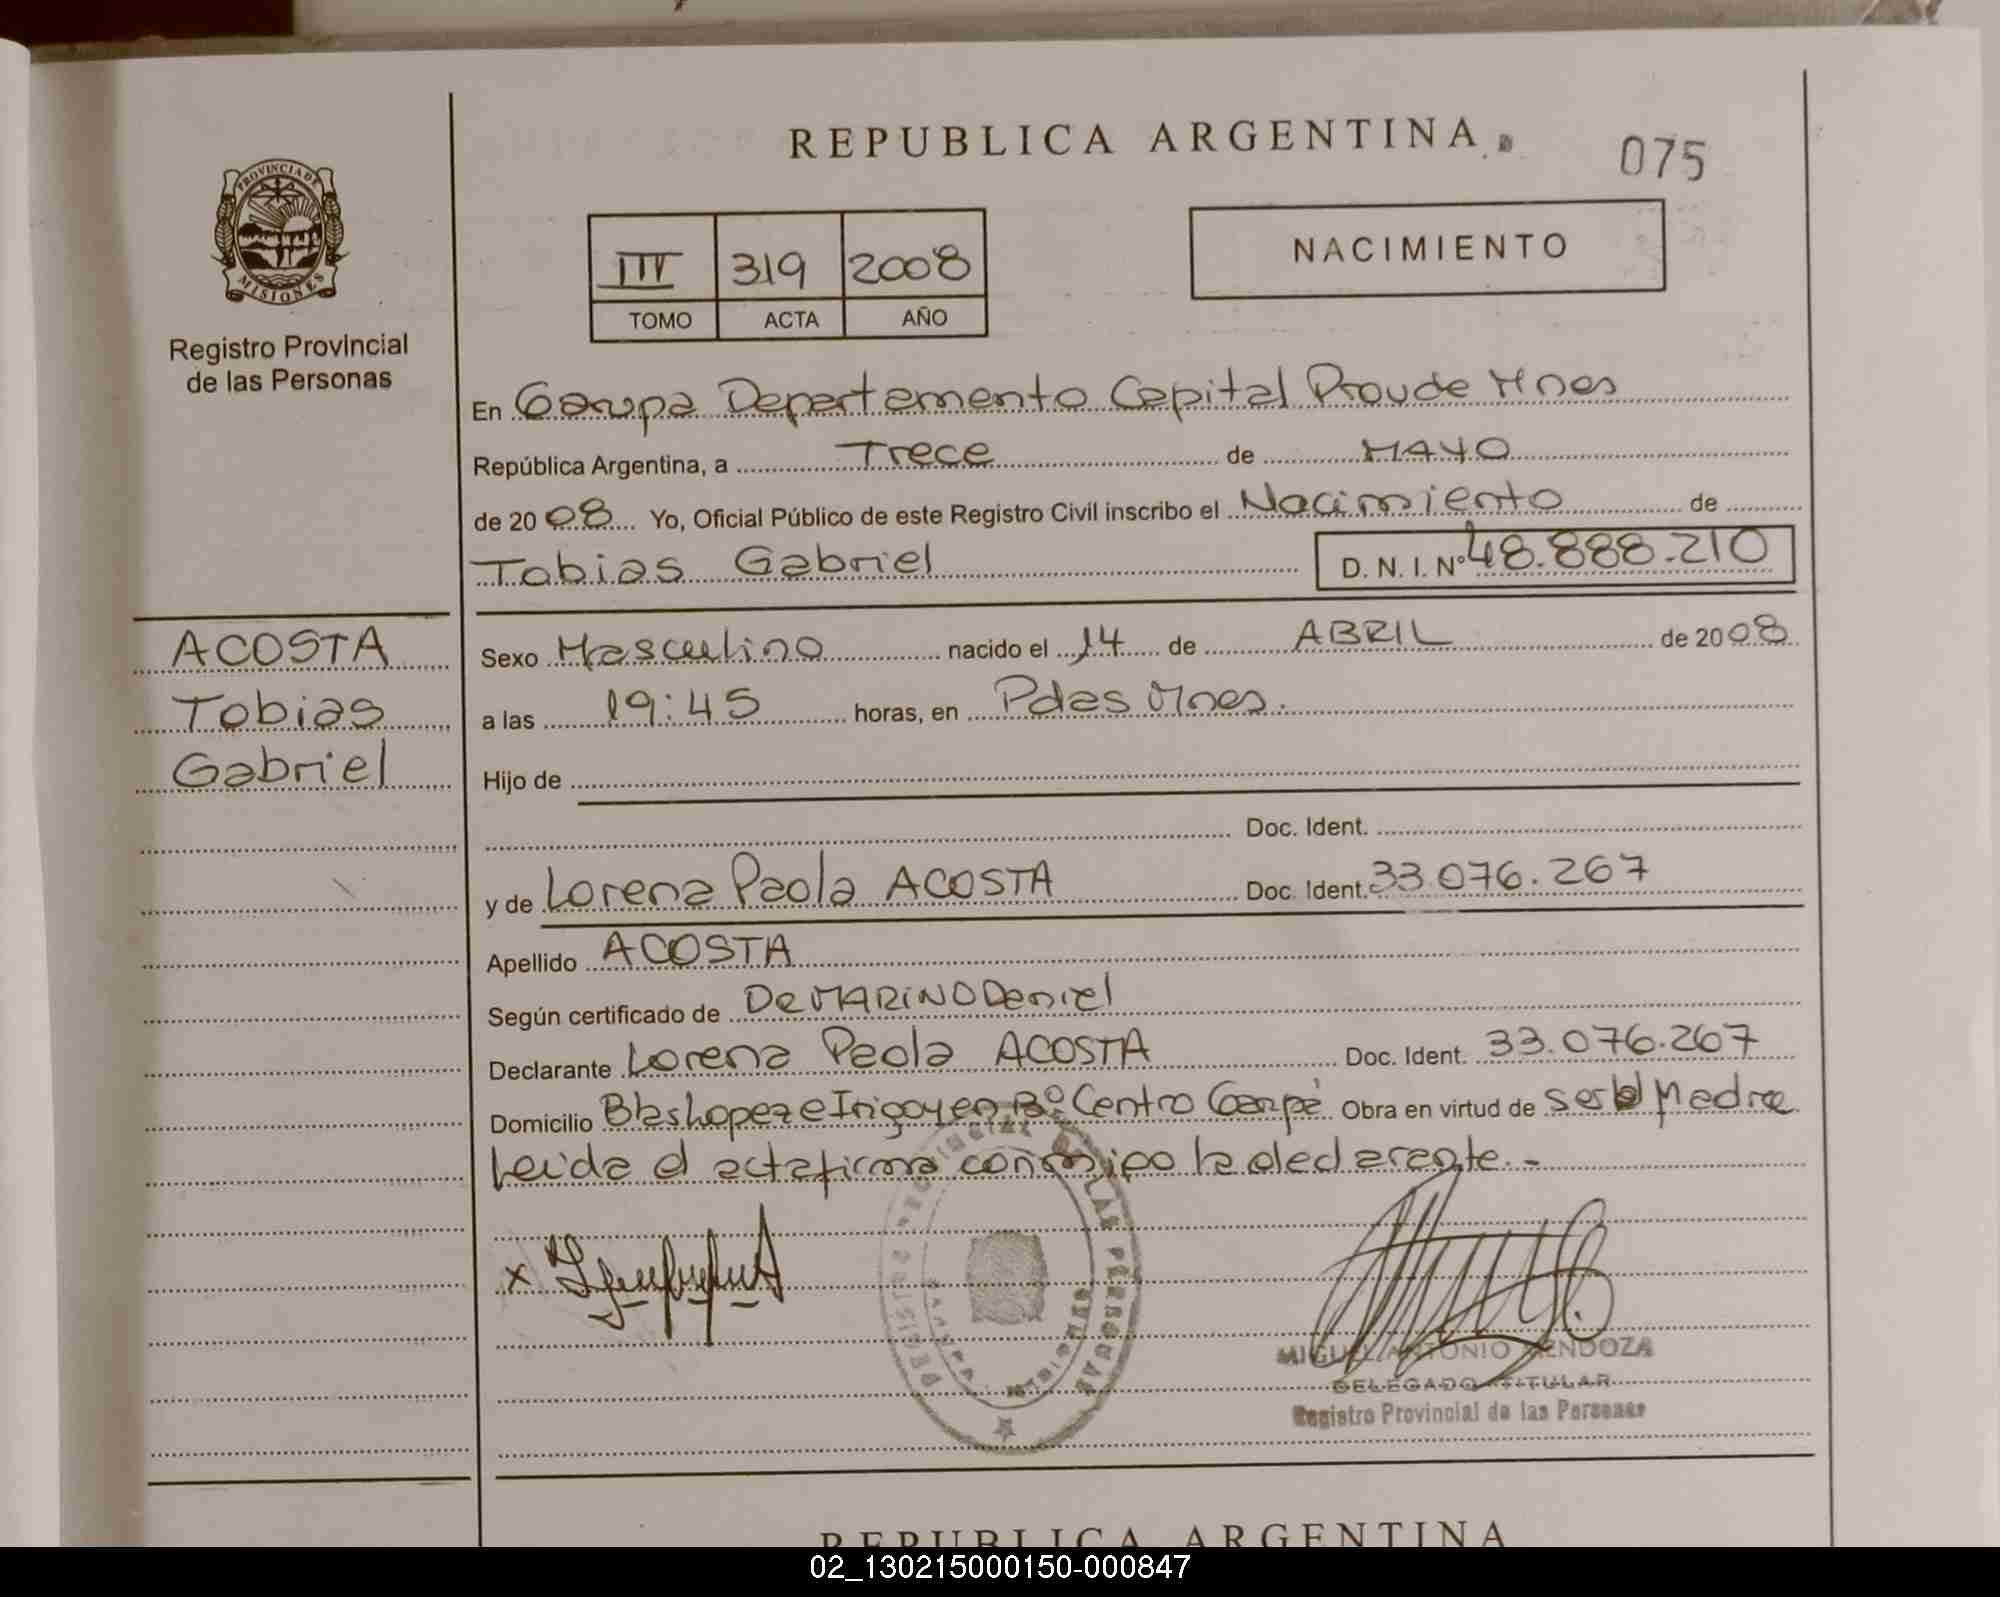 REPUBLICA ARGENTINA
075
PROVINCIA DE
MISIONES
Registro Provincial
de las Personas
III 319 2008
TOMO ACTA AÑO
NACIMIENTO
En Garupa Departamento Capital Prov de Mnes
República Argentina, a Trece de MAYO
de 2008 Yo, Oficial Público de este Registro Civil inscribo el Nacimiento de
Tobias Gabriel D. N. I. Nº 48.888.210
ACOSTA
Tobias
Gabriel
Sexo Masculino nacido el 14 de ABRIL de 2008
a las 19:45 horas, en Pdas Mnes.
Hijo de
Doc. Ident.
y de Lorena Paola ACOSTA Doc. Ident. 33.076.267
Apellido ACOSTA
Según certificado de De MARINO Daniel
Declarante Lorena Paola ACOSTA Doc. Ident. 33.076.267
Domicilio Blas Lopez e Irigoyen Bº Centro Garupá Obra en virtud de ser la Madre
Leida el acta firma conmigo la declarante.-
x
MIGUEL ANTONIO MENDOZA
DELEGADO TITULAR
Registro Provincial de las Personas
REPUBLICA ARGENTINA
02_130215000150-000847